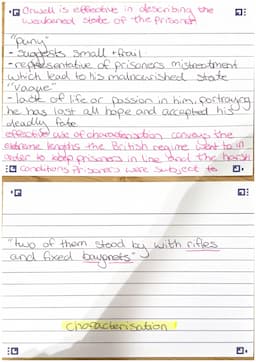 Orwell is effective in describing the
weakened state of the prisoner
"puny"
- suggests small + frail
- representative of prisoners mistreatment
which lead to his malnourished state
"vague"
- lack of life or passion in him, portraying
he has lost all hope and accepted his
deadly fate
effective use of characterisation conveys the
extreme lengths the British regime went to in
order to keep prisoners in line and the harsh
conditions prisoners were subject to
"two of them stood by with rifles
and fixed bayonets"
characterisation